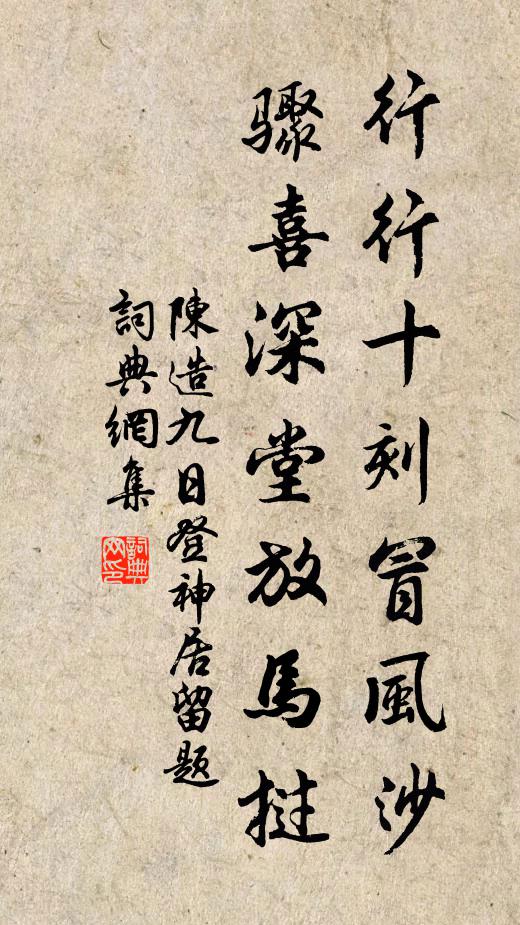 行行十刻冒風沙
驟喜深堂放馬撾
陳造九日登神居留題
詞典網集
詞典網印